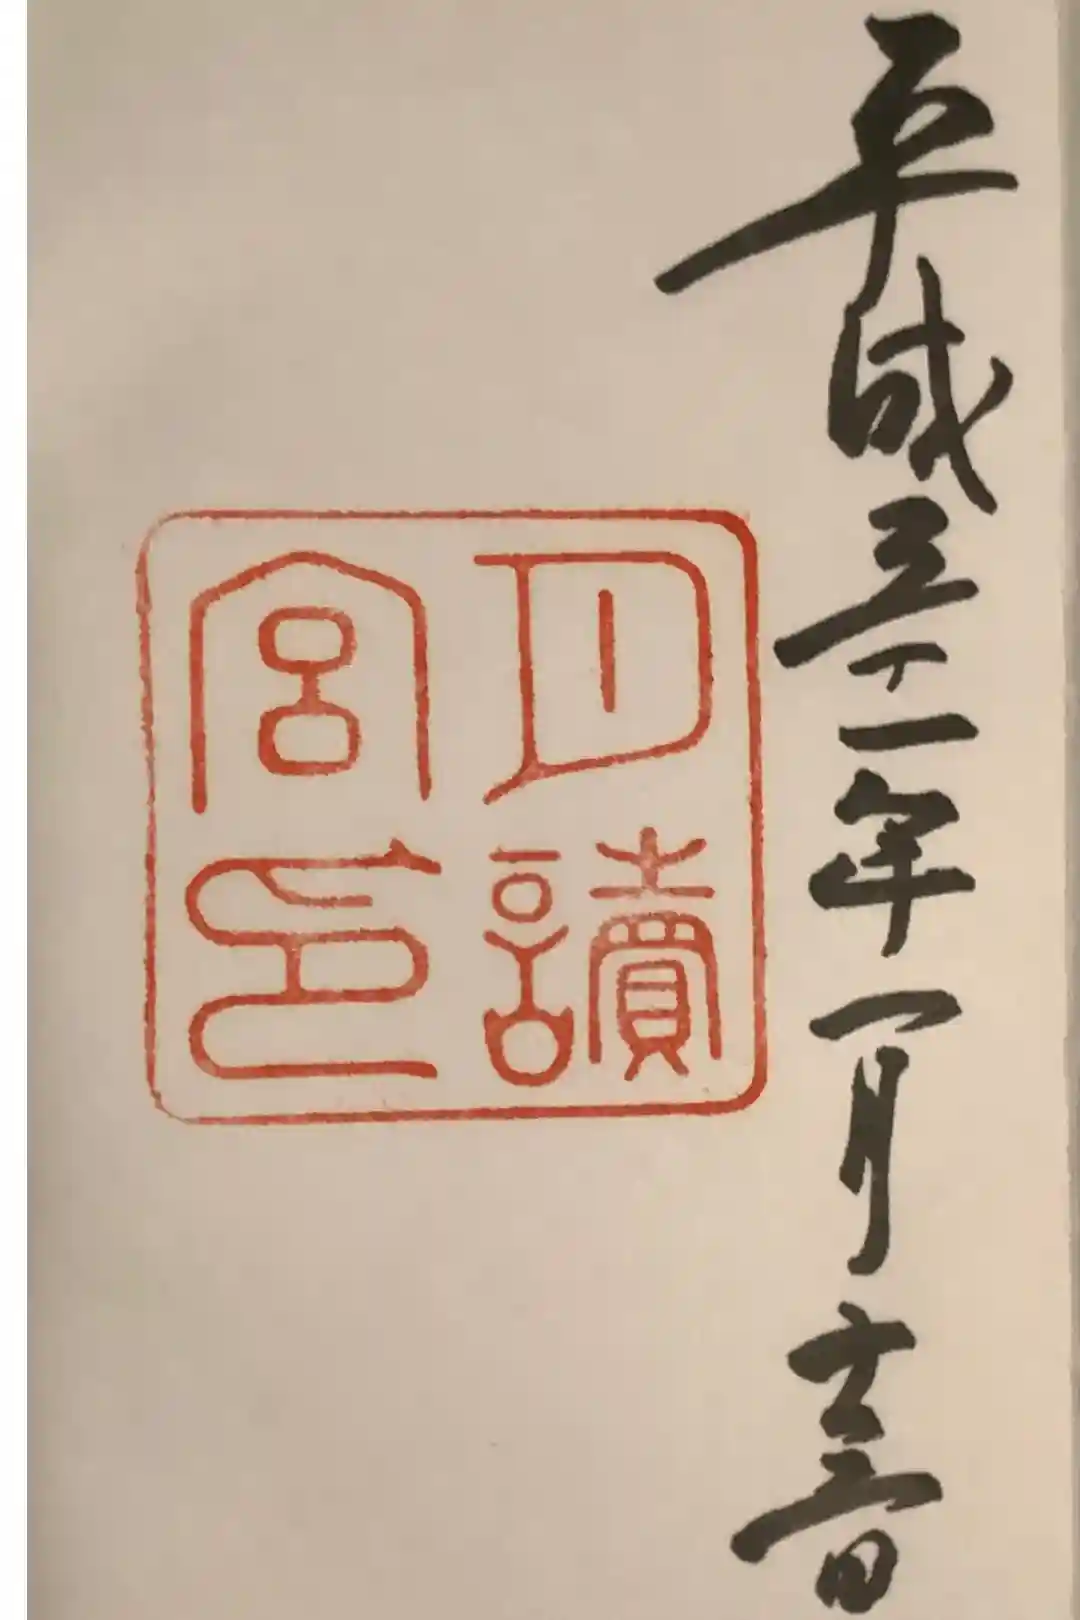 平成三十一年一月十三日
月讀
宮印